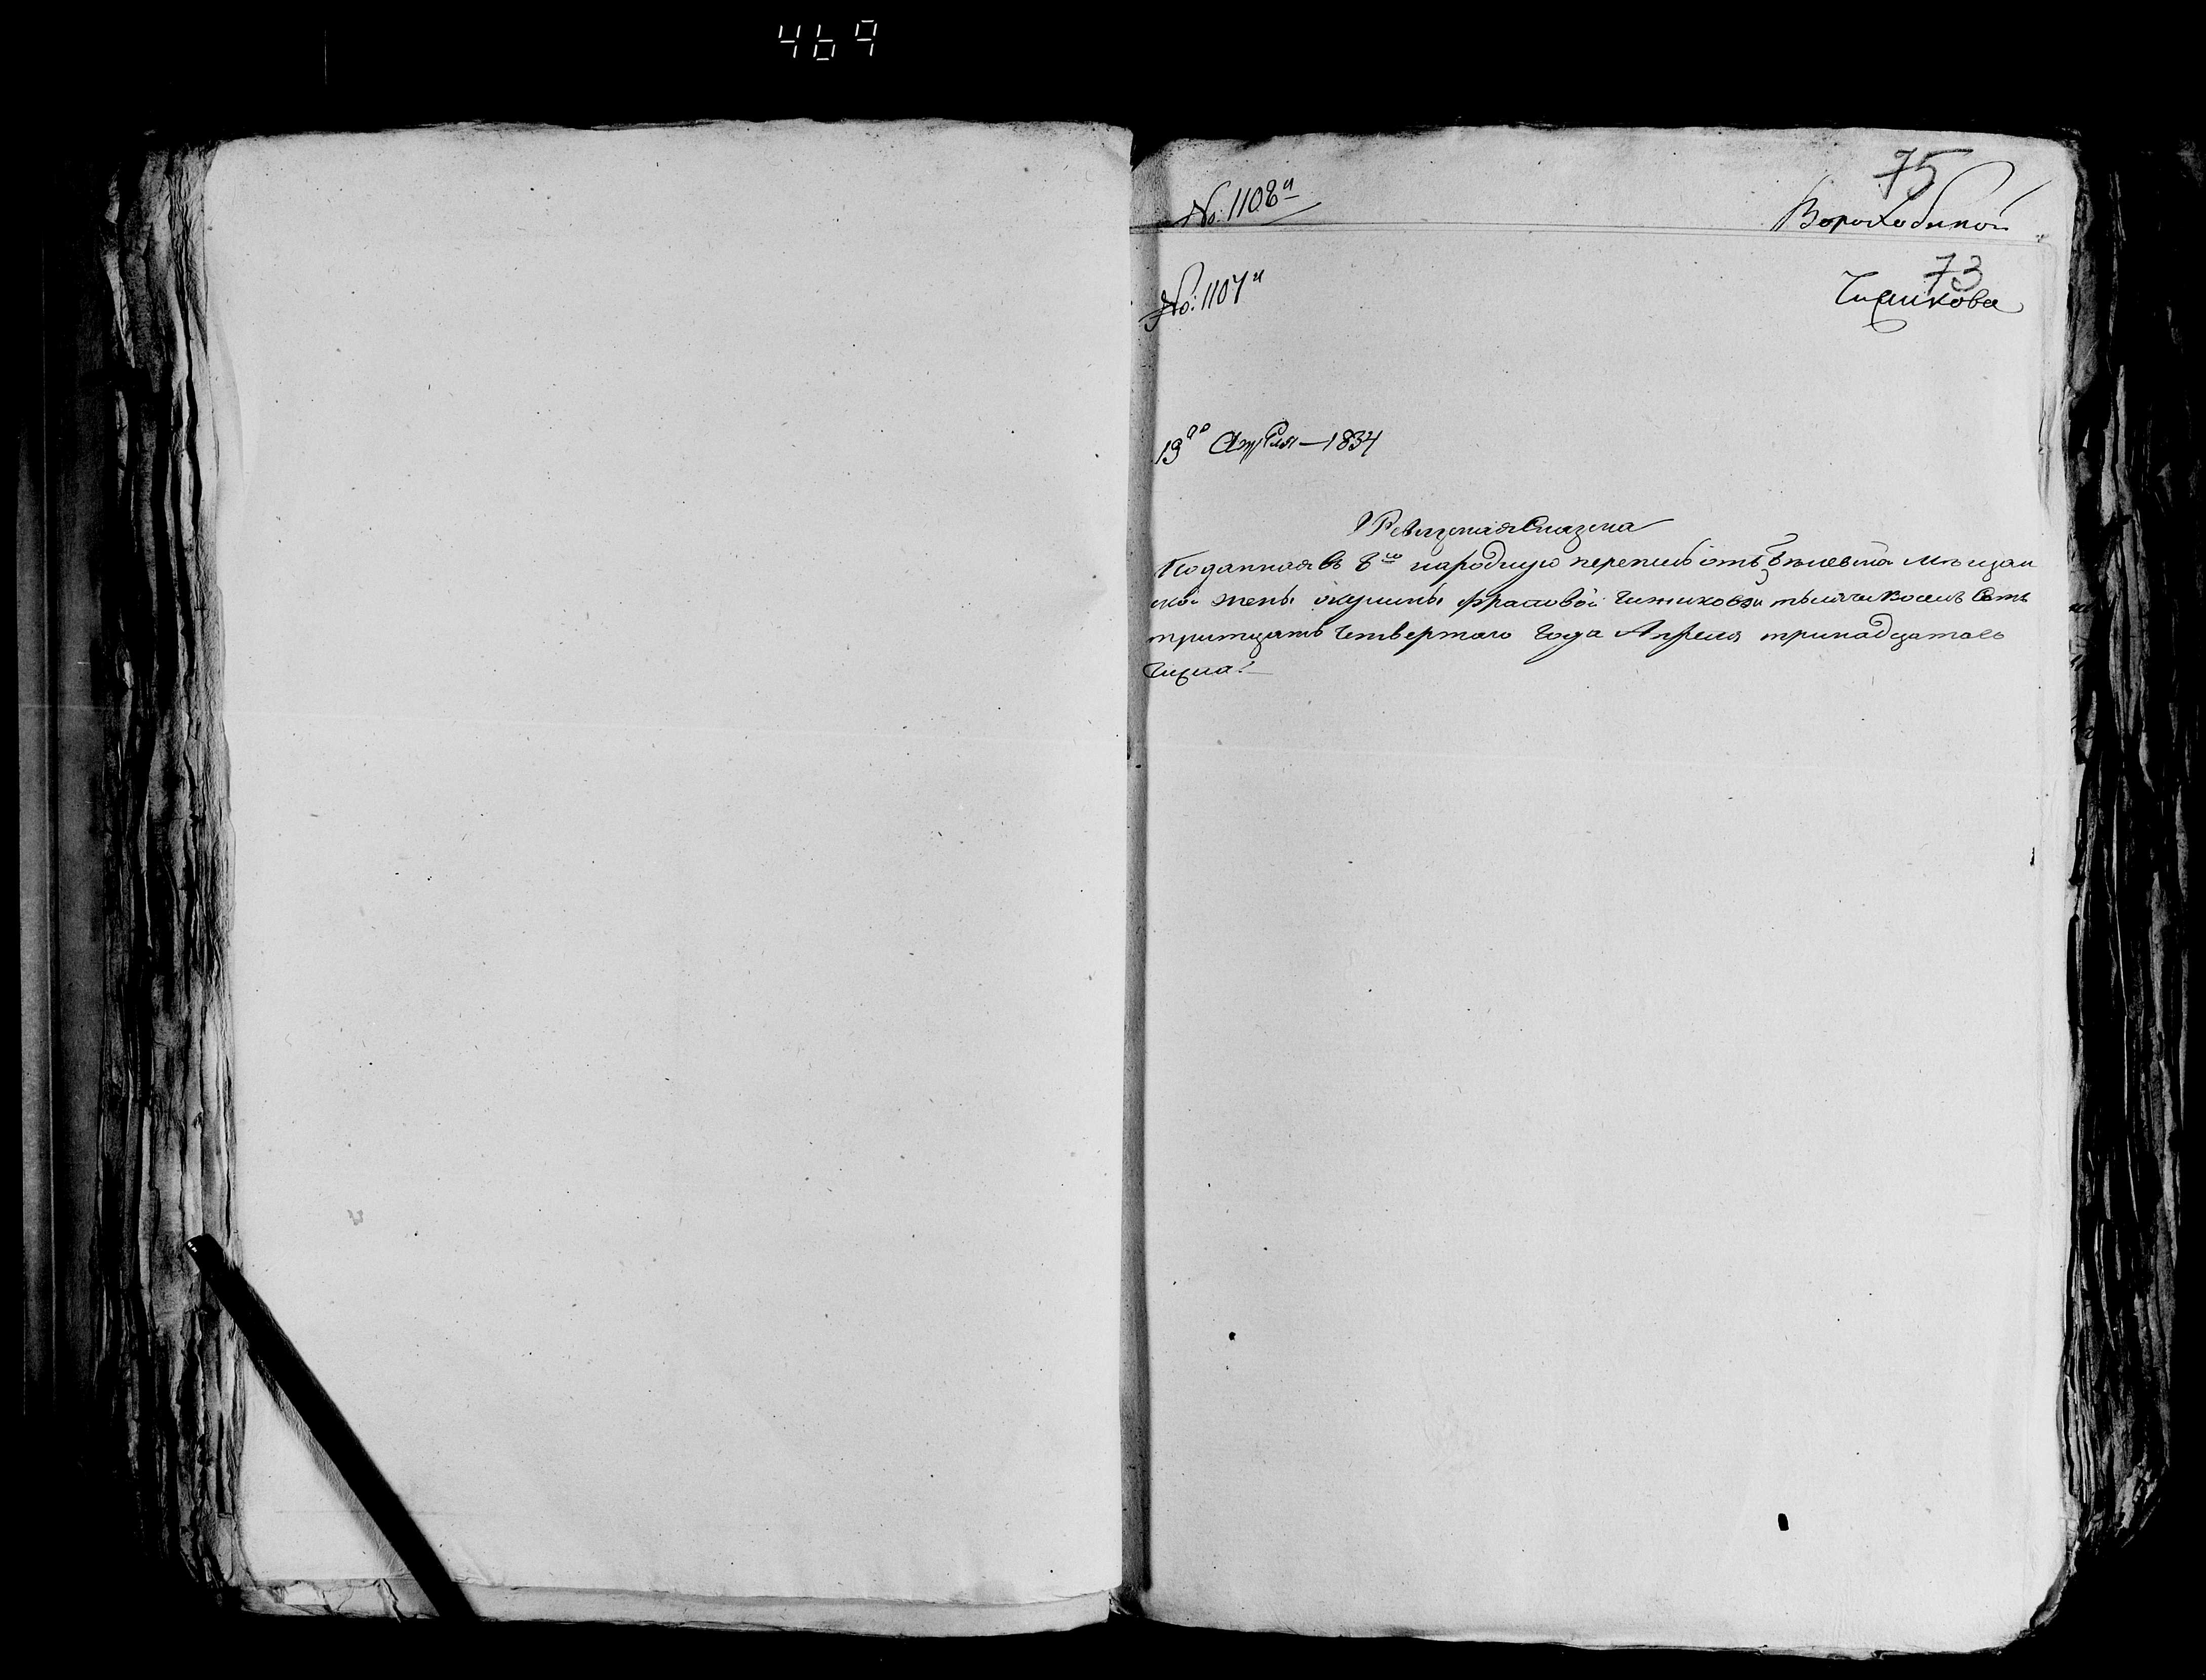 469
75
No: 1108й
Вороходиной
73
No: 1107й
Чижикова
13го Апреля — 1834
Ревизская Сказка
Поданная въ 8ю народную перепись отъ Белевской мещан
ской жены Акулины Чижиковой тысяча восемь Сотъ
тритцать Четвертаго Года Апреля тринадцатаго
Числа: